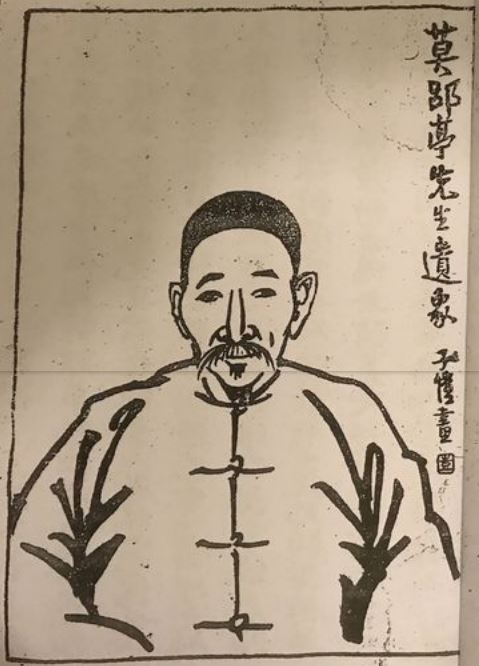 莫郘亭先生遺象 子愷畫